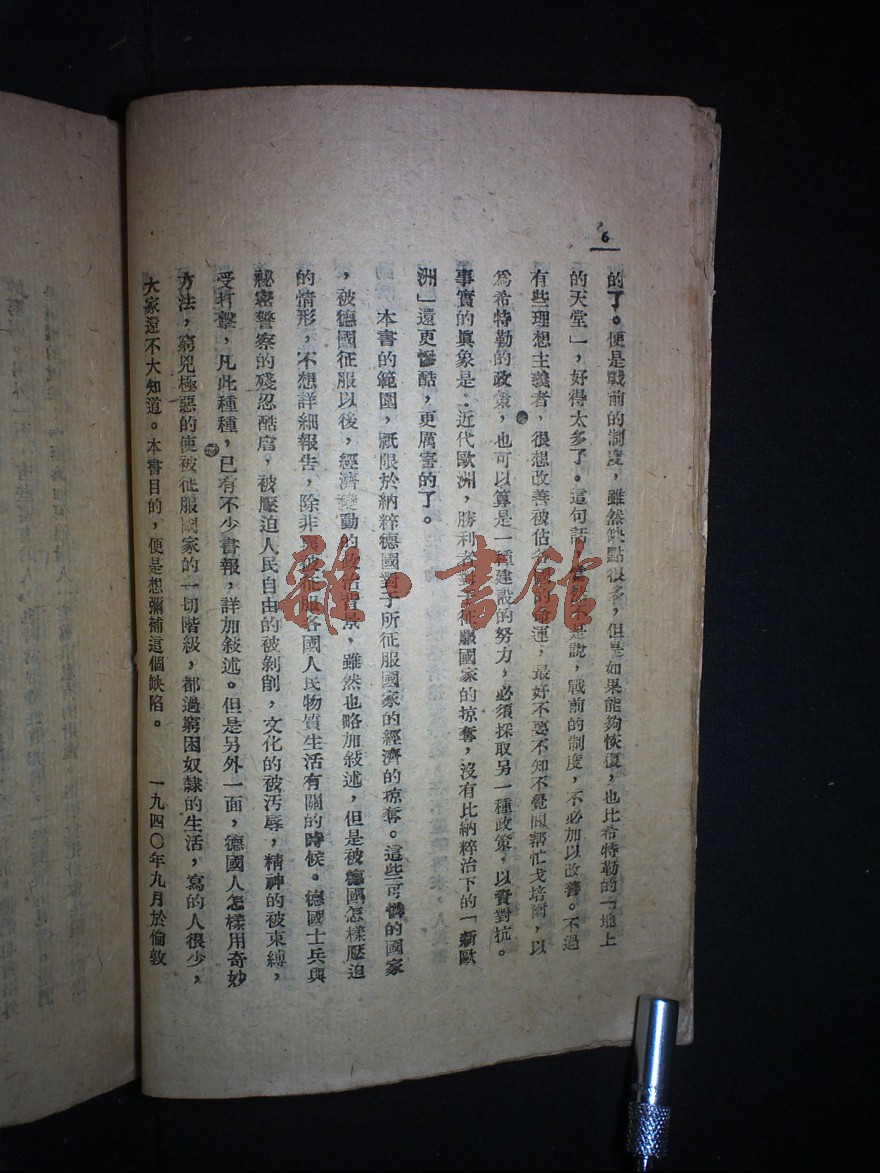 6
的了。便是戰前的制度，雖然缺點很多，但是如果能夠恢復，也比希特勒的「地上
的天堂」，好得太多了。這句話，當然不是說，戰前的制度，不必加以改善。不過
有些理想主義者，很想改善被佔各國的命運，最好不要不知不覺間帮忙戈培爾，以
爲希特勒的政策，也可以算是一種建設的努力，必須採取另一種政策，以資對抗。
事實的眞象是：近代歐洲，勝利者對于征服國家的掠奪，沒有比納粹治下的「新歐
洲」還更慘酷，更厲害的了。
本書的範圍，祇限於納粹德國對于所征服國家的經濟的掠奪。這些可憐的國家
，被德國征服以後，經濟變動的政治背景，雖然也略加敍述，但是被德國怎樣壓迫
的情形，不想詳細報告，除非與被征服各國人民物質生活有關的時候。德國士兵與
祕密警察的殘忍酷虐，被壓迫人民自由的被剝削，文化的被汚辱，精神的被束縛，
受打擊，凡此種種，已有不少書報，詳加敍述。但是另外一面，德國人怎樣用奇妙
方法，窮兇極惡的使被征服國家的一切階級，都過窮困奴隸的生活，寫的人很少，
大家還不大知道。本書目的，便是想彌補這個缺陷。 一九四〇年九月於倫敦
雜·書館